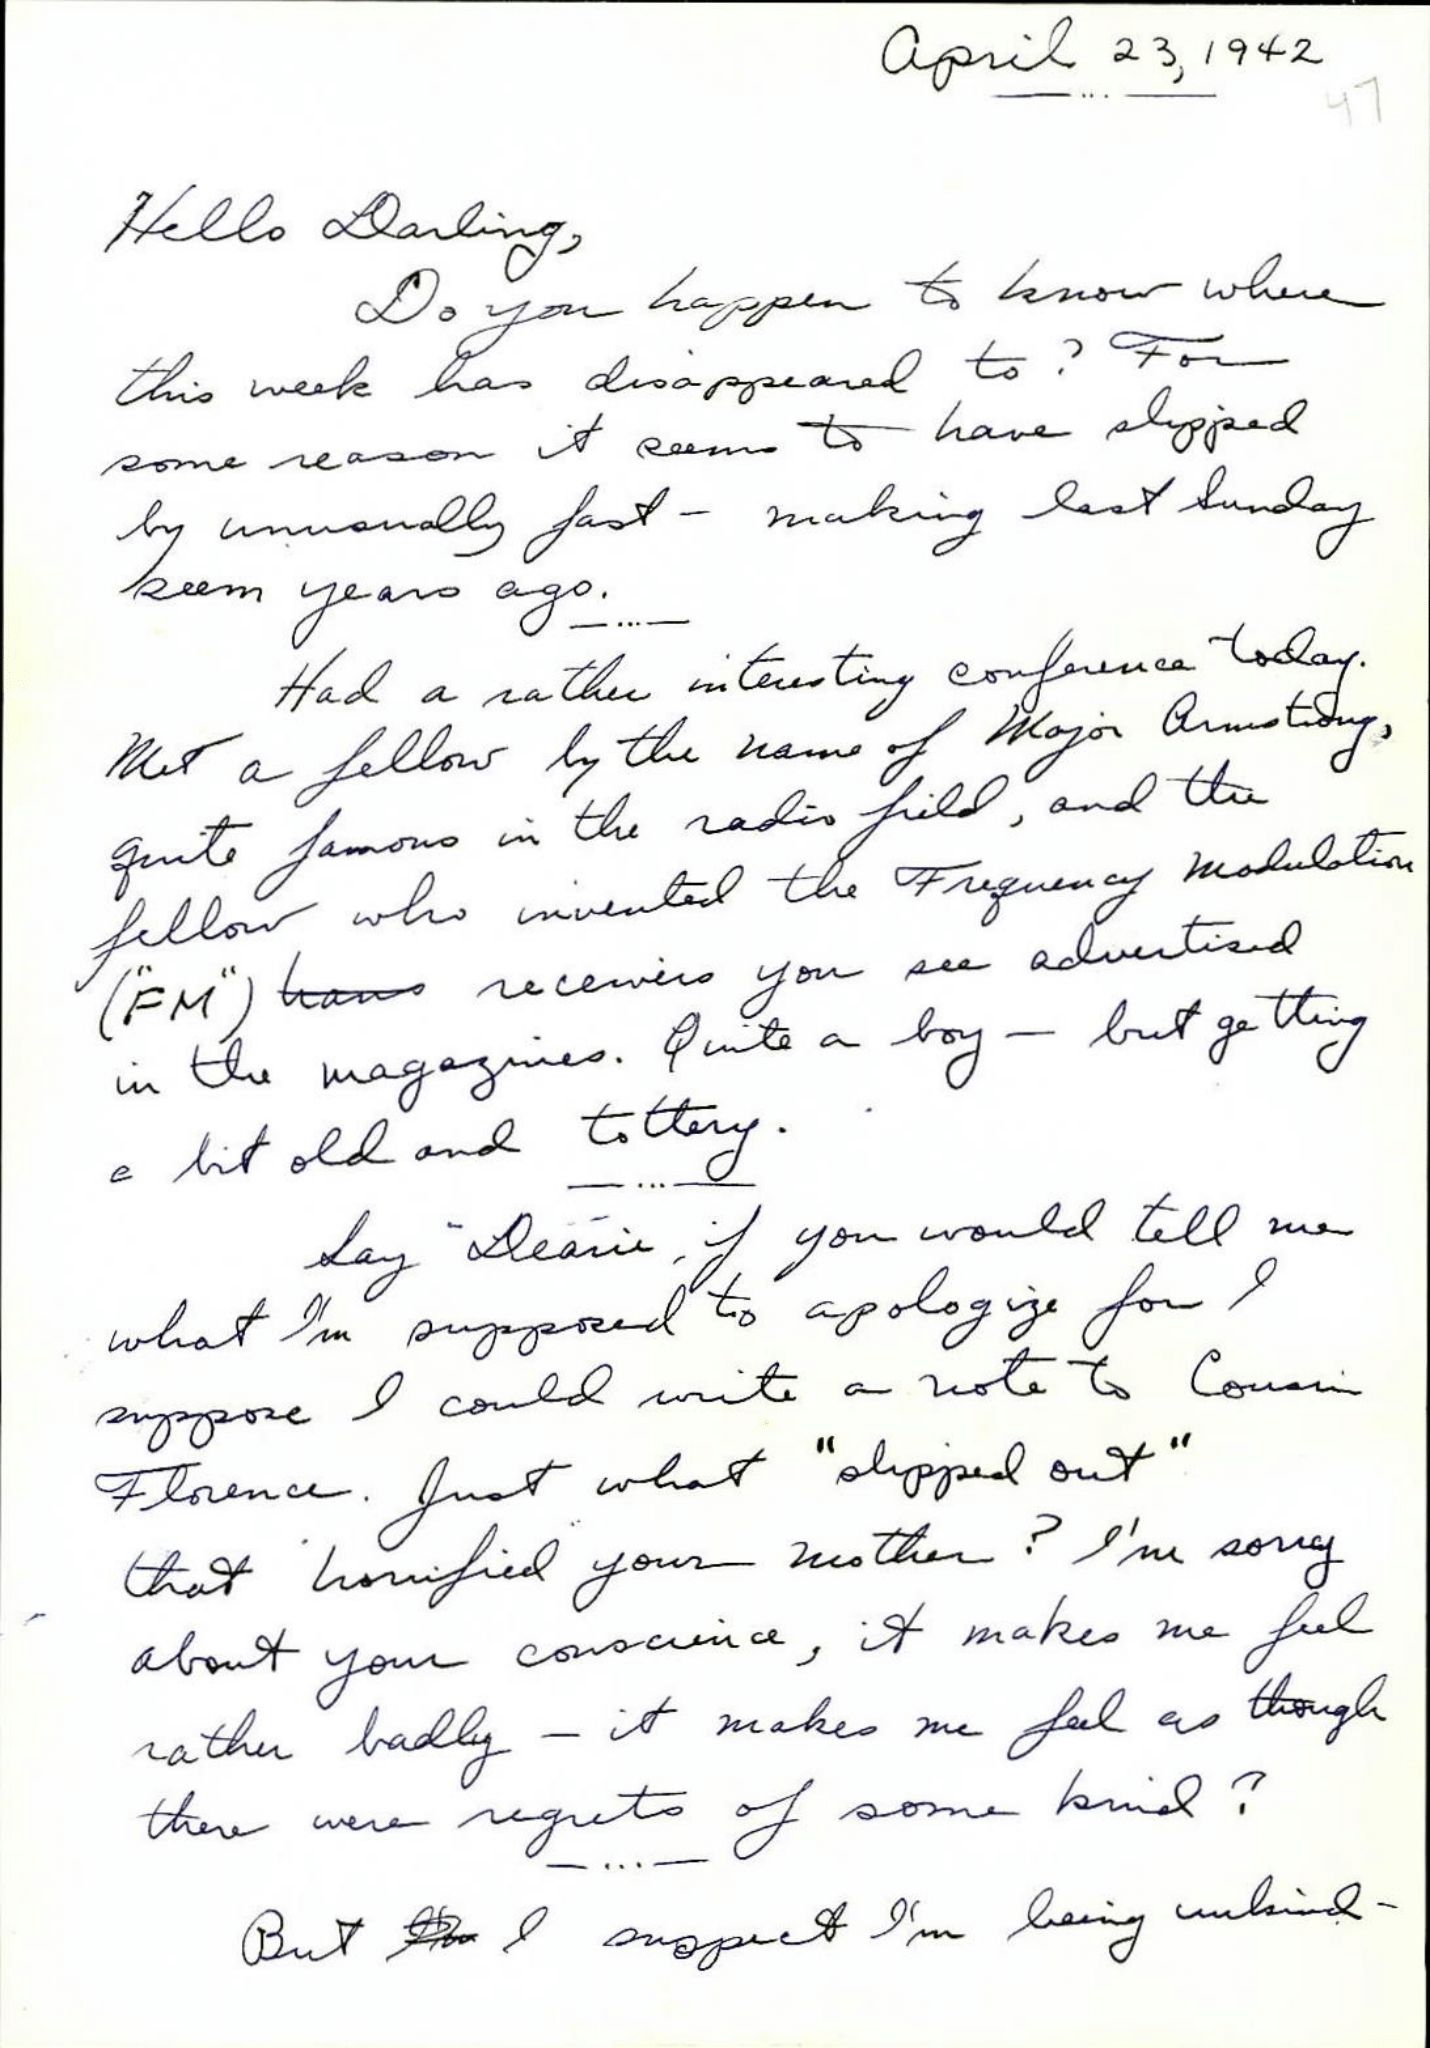 April 23, 1942
47
Hello Darling,
Do you happen to know where
this week has disappeared to? For
some reason it seems to have slipped
by unusually fast - making last Sunday
seem years ago.
Had a rather interesting conference today.
Met a fellow by the name of Major Armstrong,
quite famous in the radio field, and the
fellow who invented the Frequency Modulation
("FM") receivers you see advertised
in the magazines. Quite a boy — but getting
a bit old and tottery.
Say "Dearie", if you would tell me
what I'm supposed to apologize for I
suppose I could write a note to Cousin
Florence. Just what "slipped out"
that "horrified" your mother? I'm sorry
about your conscience, it makes me feel
rather badly — it makes me feel as though
there were regrets of some kind?
But I suspect I'm being unkind -